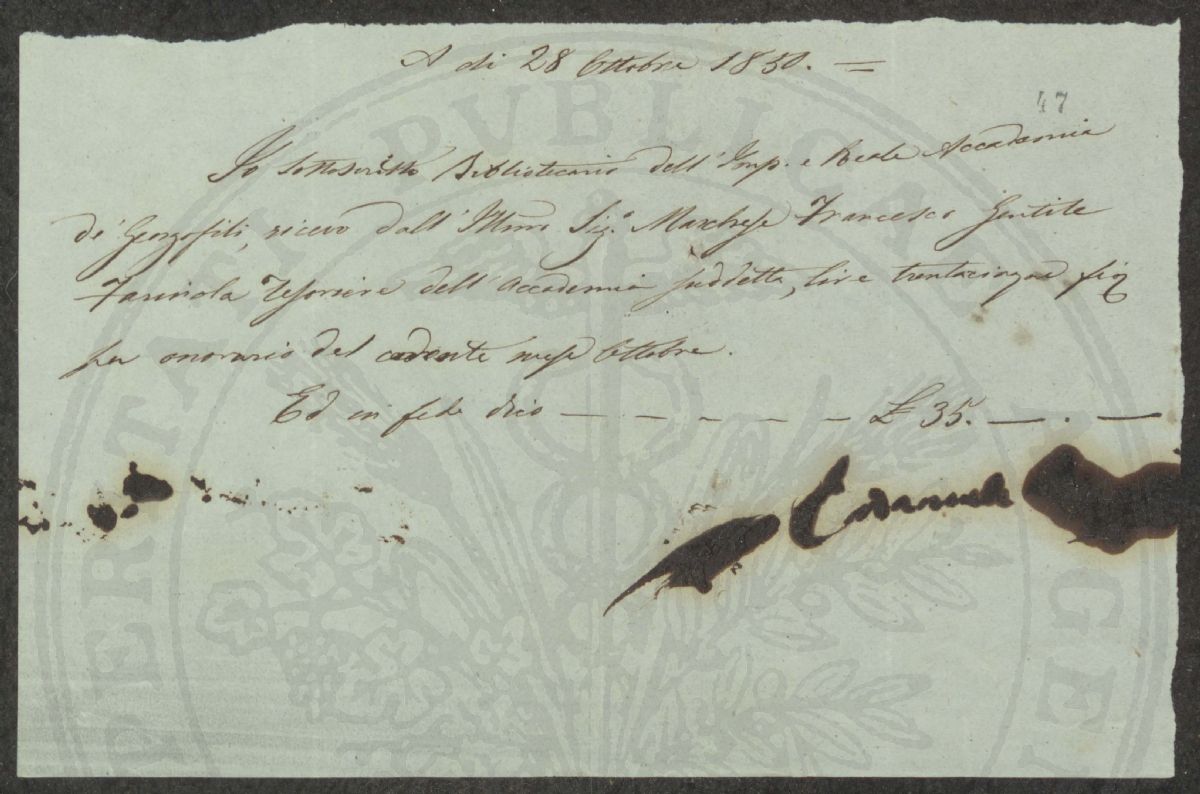 A di 28 Ottobre 1850. =
47
Io Sottoscritto Bibliotecario dell' Imp. e Reale Accademia
de' Georgofili, ricevo dall' Illmo Sig. Marchese Francesco Gentile
Farinola Tesoriere dell' Accademia suddetta, lire trentacinque
per onorario del cadente mese Ottobre.
Ed in fede dico — — — — — — £ 35. — . —
PUBLICAE